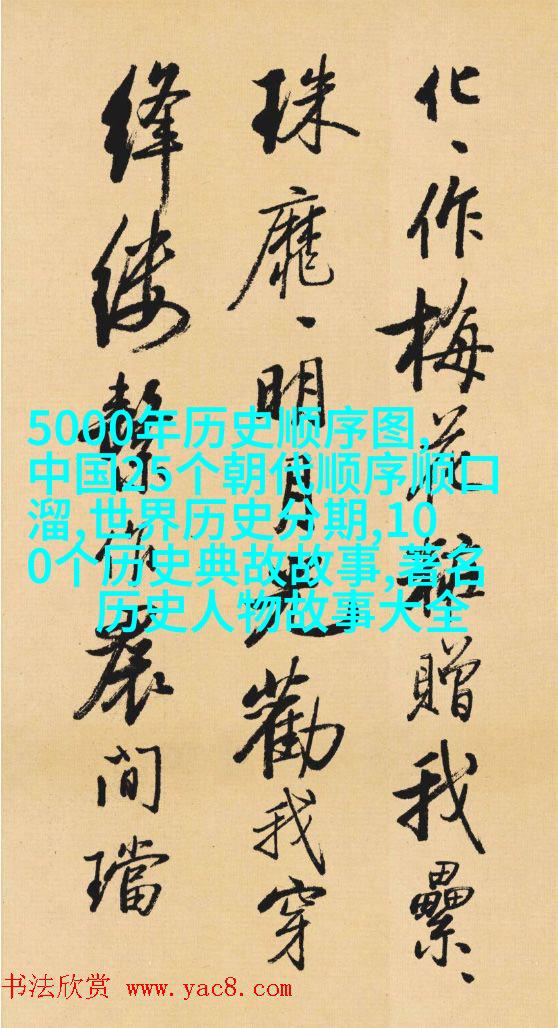 化、作梅花粧贈我纍、
珠靡、明月光勸我穿
絳縷繫作裠間璫
5000年历史顺序图,
中国25个朝代顺序顺口
溜,世界历史分期,10
0个历史典故故事,著名
历史人物故事大全
书法欣赏 www.yac8.com